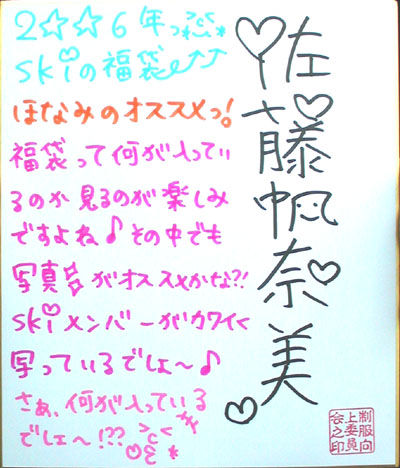 2☆☆6年
skiの福袋
ほなみのオススメっ!
福袋って何が入ってい
るのか見るのが楽しみ
ですよね♪その中でも
写真がオススメかな?!
skiメンバーがカワイく
写っているでしょ〜♪
さぁ、何が入っている
でしょ〜!??
佐藤帆奈美
制服向
上委員
会之印